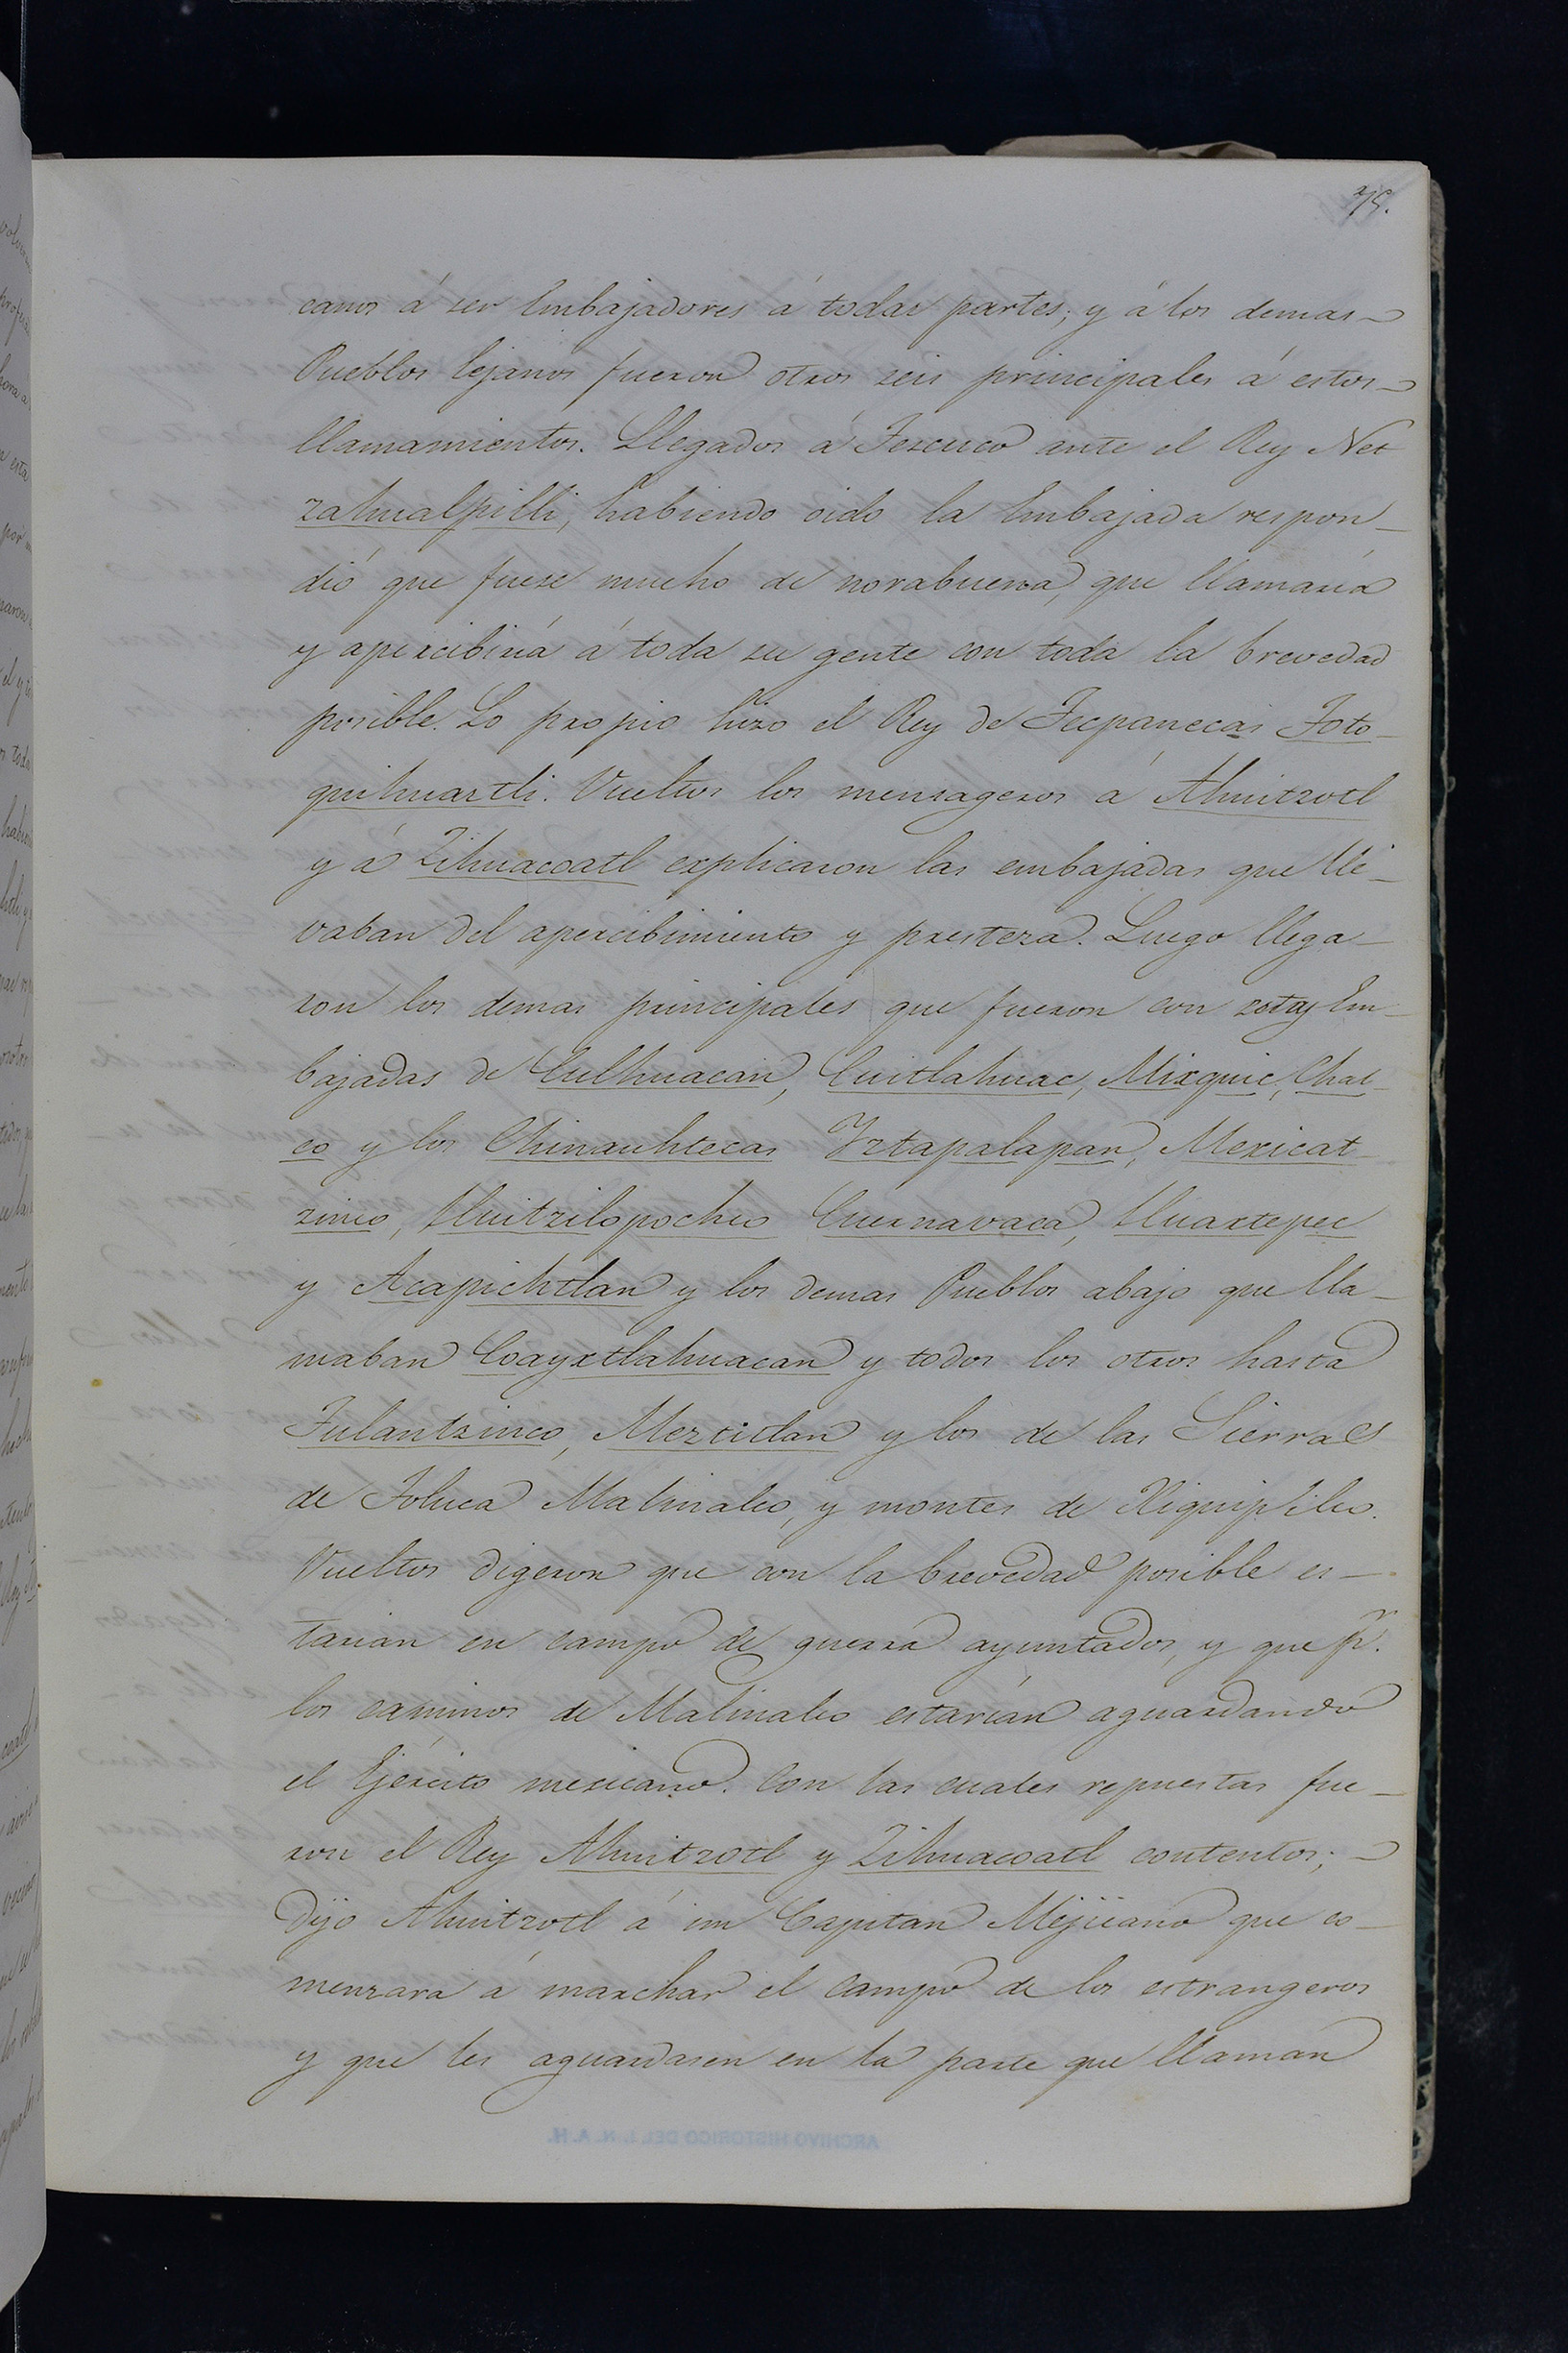 canos á ser Embajadores á todas partes; y á los demas
Pueblos lejanos fueron otros seis principales á estos
llamamientos. Llegados á Tescuco ante el Rey Net
zahualpilli, habiendo oido la Embajada respon-
dió que fuese mucho de norabuena, que llamaría
y apercibiría á toda su gente con toda la brevedad
posible. Lo propio hizo el Rey de Tecpanecas Toto-
quihuaztli. Vueltos los mensageros á Ahuitzotl
y á Zihuacoatl explicaron las embajadas que lle-
vaban del apercibimiento y presteza. Luego llega-
ron los demas principales que fueron con estas Em-
bajadas de Culhuacan, Cuitlahuac, Mixquic, Chal-
co y los Chinauhtecas Yztapalapan, Mexicat-
zinco, Huitzilopochco Cuernavaca, Huaxtepec
y Acapichtlan y los demas Pueblos abajo que lla-
maban Coayxtlahuacan y todos los otros hasta
Tulantzinco, Meztitlan y los de las Sierras
de Toluca Malinalco, y montes de Xiquipilco.
Vueltos digeron que con la brevedad posible es-
tarian en campo de guerra ayuntados, y que pr.
los caminos de Malinalco estarían aguardando
el Ejército mexicano. Con las cuales repuestas fue-
ron el Rey Ahuitzotl y Zihuacoatl contentos;
dijo Ahuitzotl á un Capitan Mejicano que co-
menzara á marchar el campo de los estrangeros
y que les aguardasen en la parte que llaman
ARCHIVO HISTORICO DEL I. N. A. H.